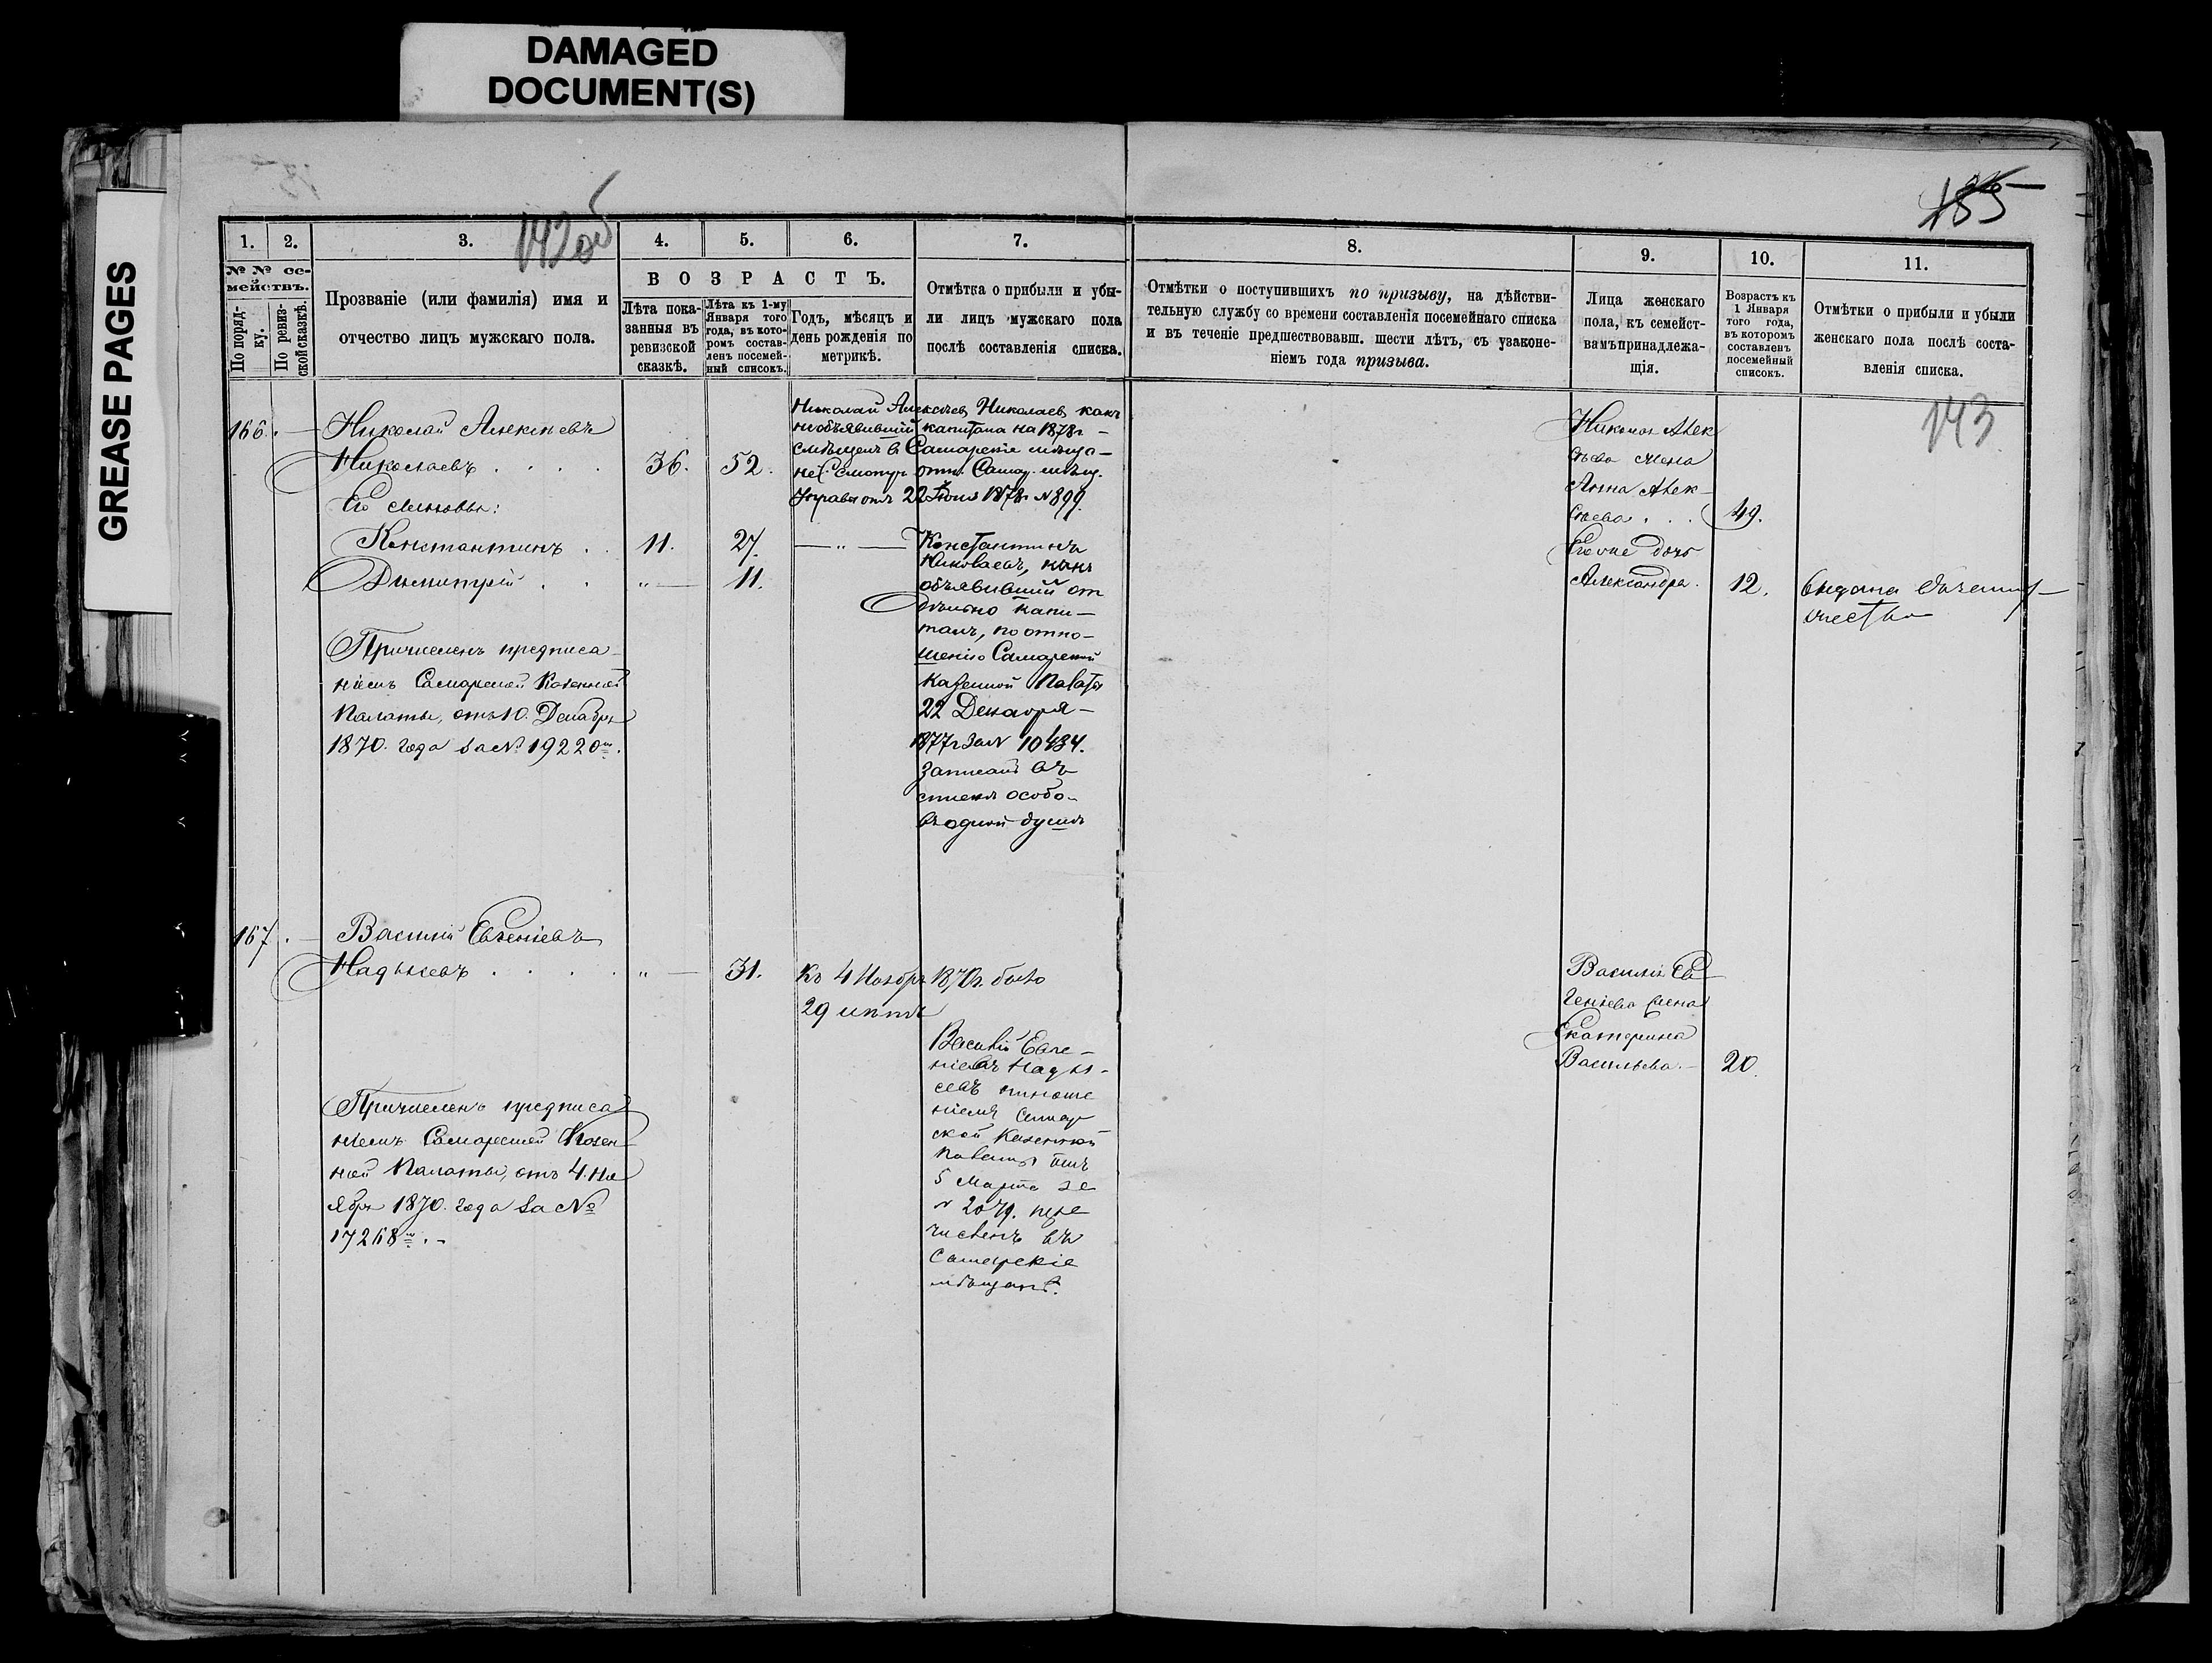 DAMAGED
DOCUMENT(S)
GREASE PAGES
142об
185
143
1.
2.
3.
4.
5.
6.
7.
8.
9.
10.
11.
№ № се-
мействъ.
По поряд-
ку.
По ревиз-
ской сказкѣ.
Прозваніе (или фамилія) имя и
отчество лицъ мужскаго пола.
ВОЗРАСТЪ.
Лѣта пока-
занныя въ
ревизской
сказкѣ.
Лѣта къ 1-му
Января того
года, въ кото-
ромъ состав-
ленъ посемей-
ный списокъ.
Годъ, мѣсяцъ и
день рожденія по
метрикѣ.
Отмѣтка о прибыли и убы-
ли лицъ мужскаго пола
послѣ составленія списка.
Отмѣтки о поступившихъ по призыву, на дѣйстви-
тельную службу со времени составленія посемейнаго списка
и въ теченіе предшествовавш. шести лѣтъ, съ узаконе-
ніемъ года призыва.
Лица женскаго
пола, къ семейст-
вамъ принадлежа-
щія.
Возрастъ къ
1 Января
того года,
въ которомъ
составленъ
посемейный
списокъ.
Отмѣтки о прибыли и убыли
женскаго пола послѣ соста-
вленія списка.
166.
Николай Алексѣевъ
Николаевъ
36.
52.
Его сыновья:
Константинъ
11.
27.
Димитрій
"
11.
Причисленъ предписа-
ніемъ Самарской Казенной
Палаты, отъ 10. Декабря
1870. года за № 19220м.
Николай Алексѣев Николаев какъ
необъявившій капитала на 1878г
въ Самарскіе мѣща-
не отн. Самар. мѣщ.
Управы отъ 22 Июня 1878г № 899.
— " —
Константинъ
Николаевъ, какъ
объявившій от
дѣльно капи-
талъ, по отно-
шенію Самарской
Казенной Палаты
22 Декабря
1877г за № 10434.
Записанъ въ
списке особо
въ одной душѣ
Николая Алек
сѣева жена
Анна Алек-
сѣева
49.
Его же дочь
Александра.
12.
выдана въ замуж-
ество
167.
Василій Евгеніевъ
Надѣевъ
"
31.
Къ 4 Ноября 1870г. было
29 лѣтъ
Василій Евге-
ніевъ
отноше
ніемъ Самар
ской Казенной
Палаты отъ
5 Марта за
№ 2079. пере
численъ въ
Самарскіе
мѣщане.
Причисленъ предписа
ніемъ Самарской Казен-
ной Палаты, отъ 4. Но
ября 1870. года за №
17268м. -
Василія Ев
геніева жена
Екатерина
Васильева. -
20.